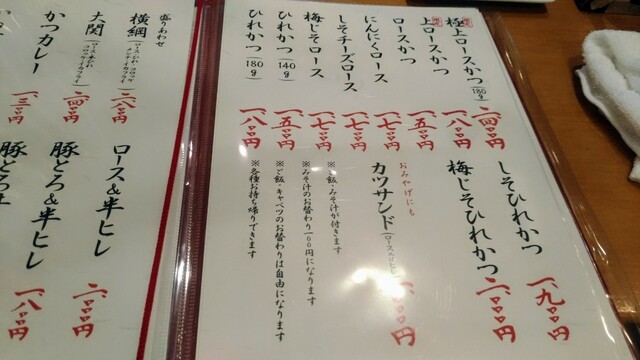 極上ロースかつ(180g) 二、四〇〇円
上ロースかつ 一、八〇〇円
ロースかつ 一、五〇〇円
にんにくロース 一、七〇〇円
しそチーズロース 一、七〇〇円
梅じそロース 一、七〇〇円
ひれかつ(140g) 一、五〇〇円
ひれかつ(180g) 一、八〇〇円
しそひれかつ 一、九〇〇円
梅じそひれかつ 二、〇〇〇円
おみやげにも
カツサンド
※ご飯・みそ汁が付きます
※みそ汁のお替わり100円になります
※ご飯、キャベツのお替わりは自由になります
※各種お持ち帰りできます
盛りあわせ
横綱 二、八〇〇円
大関 二、四〇〇円
かつカレー 一、三〇〇円
ロース&半ヒレ 二、〇〇〇円
豚とろ&半ヒレ 一、八〇〇円